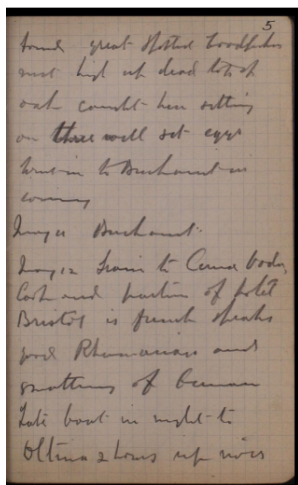 5
found great spotted woodpeckers
nest high up dead top of
oak caught hen sitting
on three well set eggs
Went in to Bucharest in
evening
May 11 Bucharest
May 12 Train to Cerna Voda,
Cook and portion of
Bristol is french speaks
good Rhumanian and
smattering of German
Late boat in night to
Oltina 2 hours up river